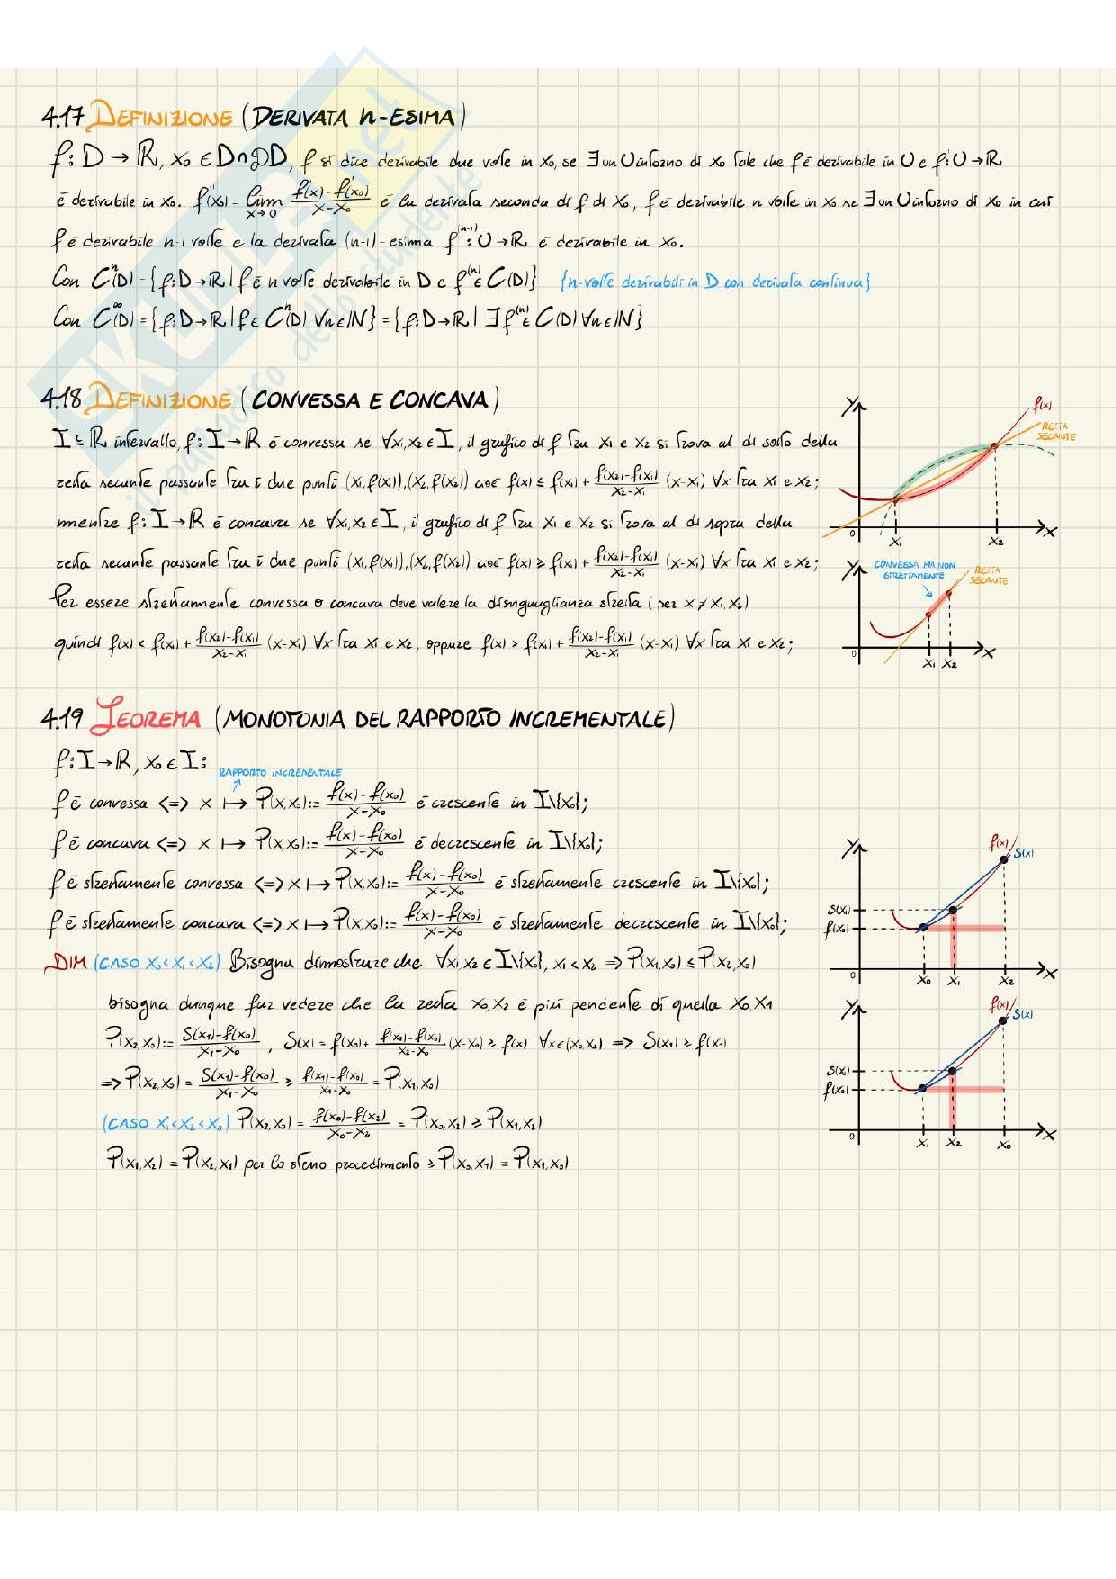 4.17 DEFINIZIONE (DERIVATA n-ESIMA)
f: D → ℝ, x₀ ∈ D∩𝒟D, f si dice derivabile due volte in x₀, se ∃ un U intorno di x₀ tale che f è derivabile in U e f': U → ℝ
è derivabile in x₀. f''(x₀) = lim x→0 (f'(x) - f'(x₀))/(x-x₀) è la derivata seconda di f di x₀, f è derivabile n volte in x₀ se ∃ un U intorno di x₀ in cui
f è derivabile n-1 volte e la derivata (n-1)-esima f⁽ⁿ⁻¹⁾: U → ℝ è derivabile in x₀.
Con Cⁿ(D) = {f: D → ℝ | f è n volte derivabile in D e f⁽ⁿ⁾ ∈ C(D)} {n-volte derivabili in D con derivata continua}
Con C^∞(D) = {f: D → ℝ | f ∈ Cⁿ(D) ∀n∈ℕ} = {f: D → ℝ | ∃ f⁽ⁿ⁾ ∈ C(D) ∀n∈ℕ}
4.18 DEFINIZIONE (CONVESSA E CONCAVA)
I ⊆ ℝ intervallo, f: I → ℝ è convessa se ∀x₁,x₂ ∈ I, il grafico di f tra x₁ e x₂ si trova al di sotto della
retta secante passante tra i due punti (x₁,f(x₁)),(x₂,f(x₂)) cioè f(x) ≤ f(x₁) + (f(x₂)-f(x₁))/(x₂-x₁) (x-x₁) ∀x tra x₁ e x₂;
mentre f: I → ℝ è concava se ∀x₁,x₂ ∈ I, il grafico di f tra x₁ e x₂ si trova al di sopra della
retta secante passante tra i due punti (x₁,f(x₁)),(x₂,f(x₂)) cioè f(x) ≥ f(x₁) + (f(x₂)-f(x₁))/(x₂-x₁) (x-x₁) ∀x tra x₁ e x₂;
Per essere strettamente convessa o concava deve valere la disuguaglianza stretta (per x ≠ x₁,x₂)
quindi f(x) < f(x₁) + (f(x₂)-f(x₁))/(x₂-x₁) (x-x₁) ∀x tra x₁ e x₂, oppure f(x) > f(x₁) + (f(x₂)-f(x₁))/(x₂-x₁) (x-x₁) ∀x tra x₁ e x₂;
Y f(x)
RETTA SECANTE
0 x₁ x₂ X
Y CONVESSA MA NON STRETTAMENTE
RETTA SECANTE
0 x₁ x₂ X
4.19 TEOREMA (MONOTONIA DEL RAPPORTO INCREMENTALE)
f: I → ℝ, x₀ ∈ I:
RAPPORTO INCREMENTALE
f è convessa <=> x ↦ P(x,x₀) := (f(x) - f(x₀))/(x-x₀) è crescente in I\{x₀};
f è concava <=> x ↦ P(x,x₀) := (f(x) - f(x₀))/(x-x₀) è decrescente in I\{x₀};
f è strettamente convessa <=> x ↦ P(x,x₀) := (f(x) - f(x₀))/(x-x₀) è strettamente crescente in I\{x₀};
f è strettamente concava <=> x ↦ P(x,x₀) := (f(x) - f(x₀))/(x-x₀) è strettamente decrescente in I\{x₀};
DIM (CASO x₀<x₁<x₂) Bisogna dimostrare che ∀x₁,x₂ ∈ I\{x₀}, x₁ < x₂ => P(x₁,x₀) ≤ P(x₂,x₀)
bisogna dunque far vedere che la retta x₀x₂ è più pendente di quella x₀x₁
P(x₂,x₀) := (S(x₁)-f(x₀))/(x₁-x₀), S(x) = f(x₀) + (f(x₂)-f(x₀))/(x₂-x₀) (x-x₀) ≥ f(x) ∀x∈(x₀,x₂) => S(x₁) ≥ f(x₁)
=> P(x₂,x₀) = (S(x₁)-f(x₀))/(x₁-x₀) ≥ (f(x₁)-f(x₀))/(x₁-x₀) = P(x₁,x₀)
(CASO x₁<x₂<x₀) P(x₂,x₀) = (f(x₀)-f(x₂))/(x₀-x₂) = P(x₀,x₂) ≥ P(x₁,x₂)
P(x₁,x₂) = P(x₂,x₁) per lo stesso procedimento ≥ P(x₀,x₁) = P(x₁,x₀)
Y f(x) S(x)
S(x₁)
f(x₀)
0 x₀ x₁ x₂ X
Y f(x) S(x)
S(x₁)
f(x₀)
0 x₁ x₂ x₀ X